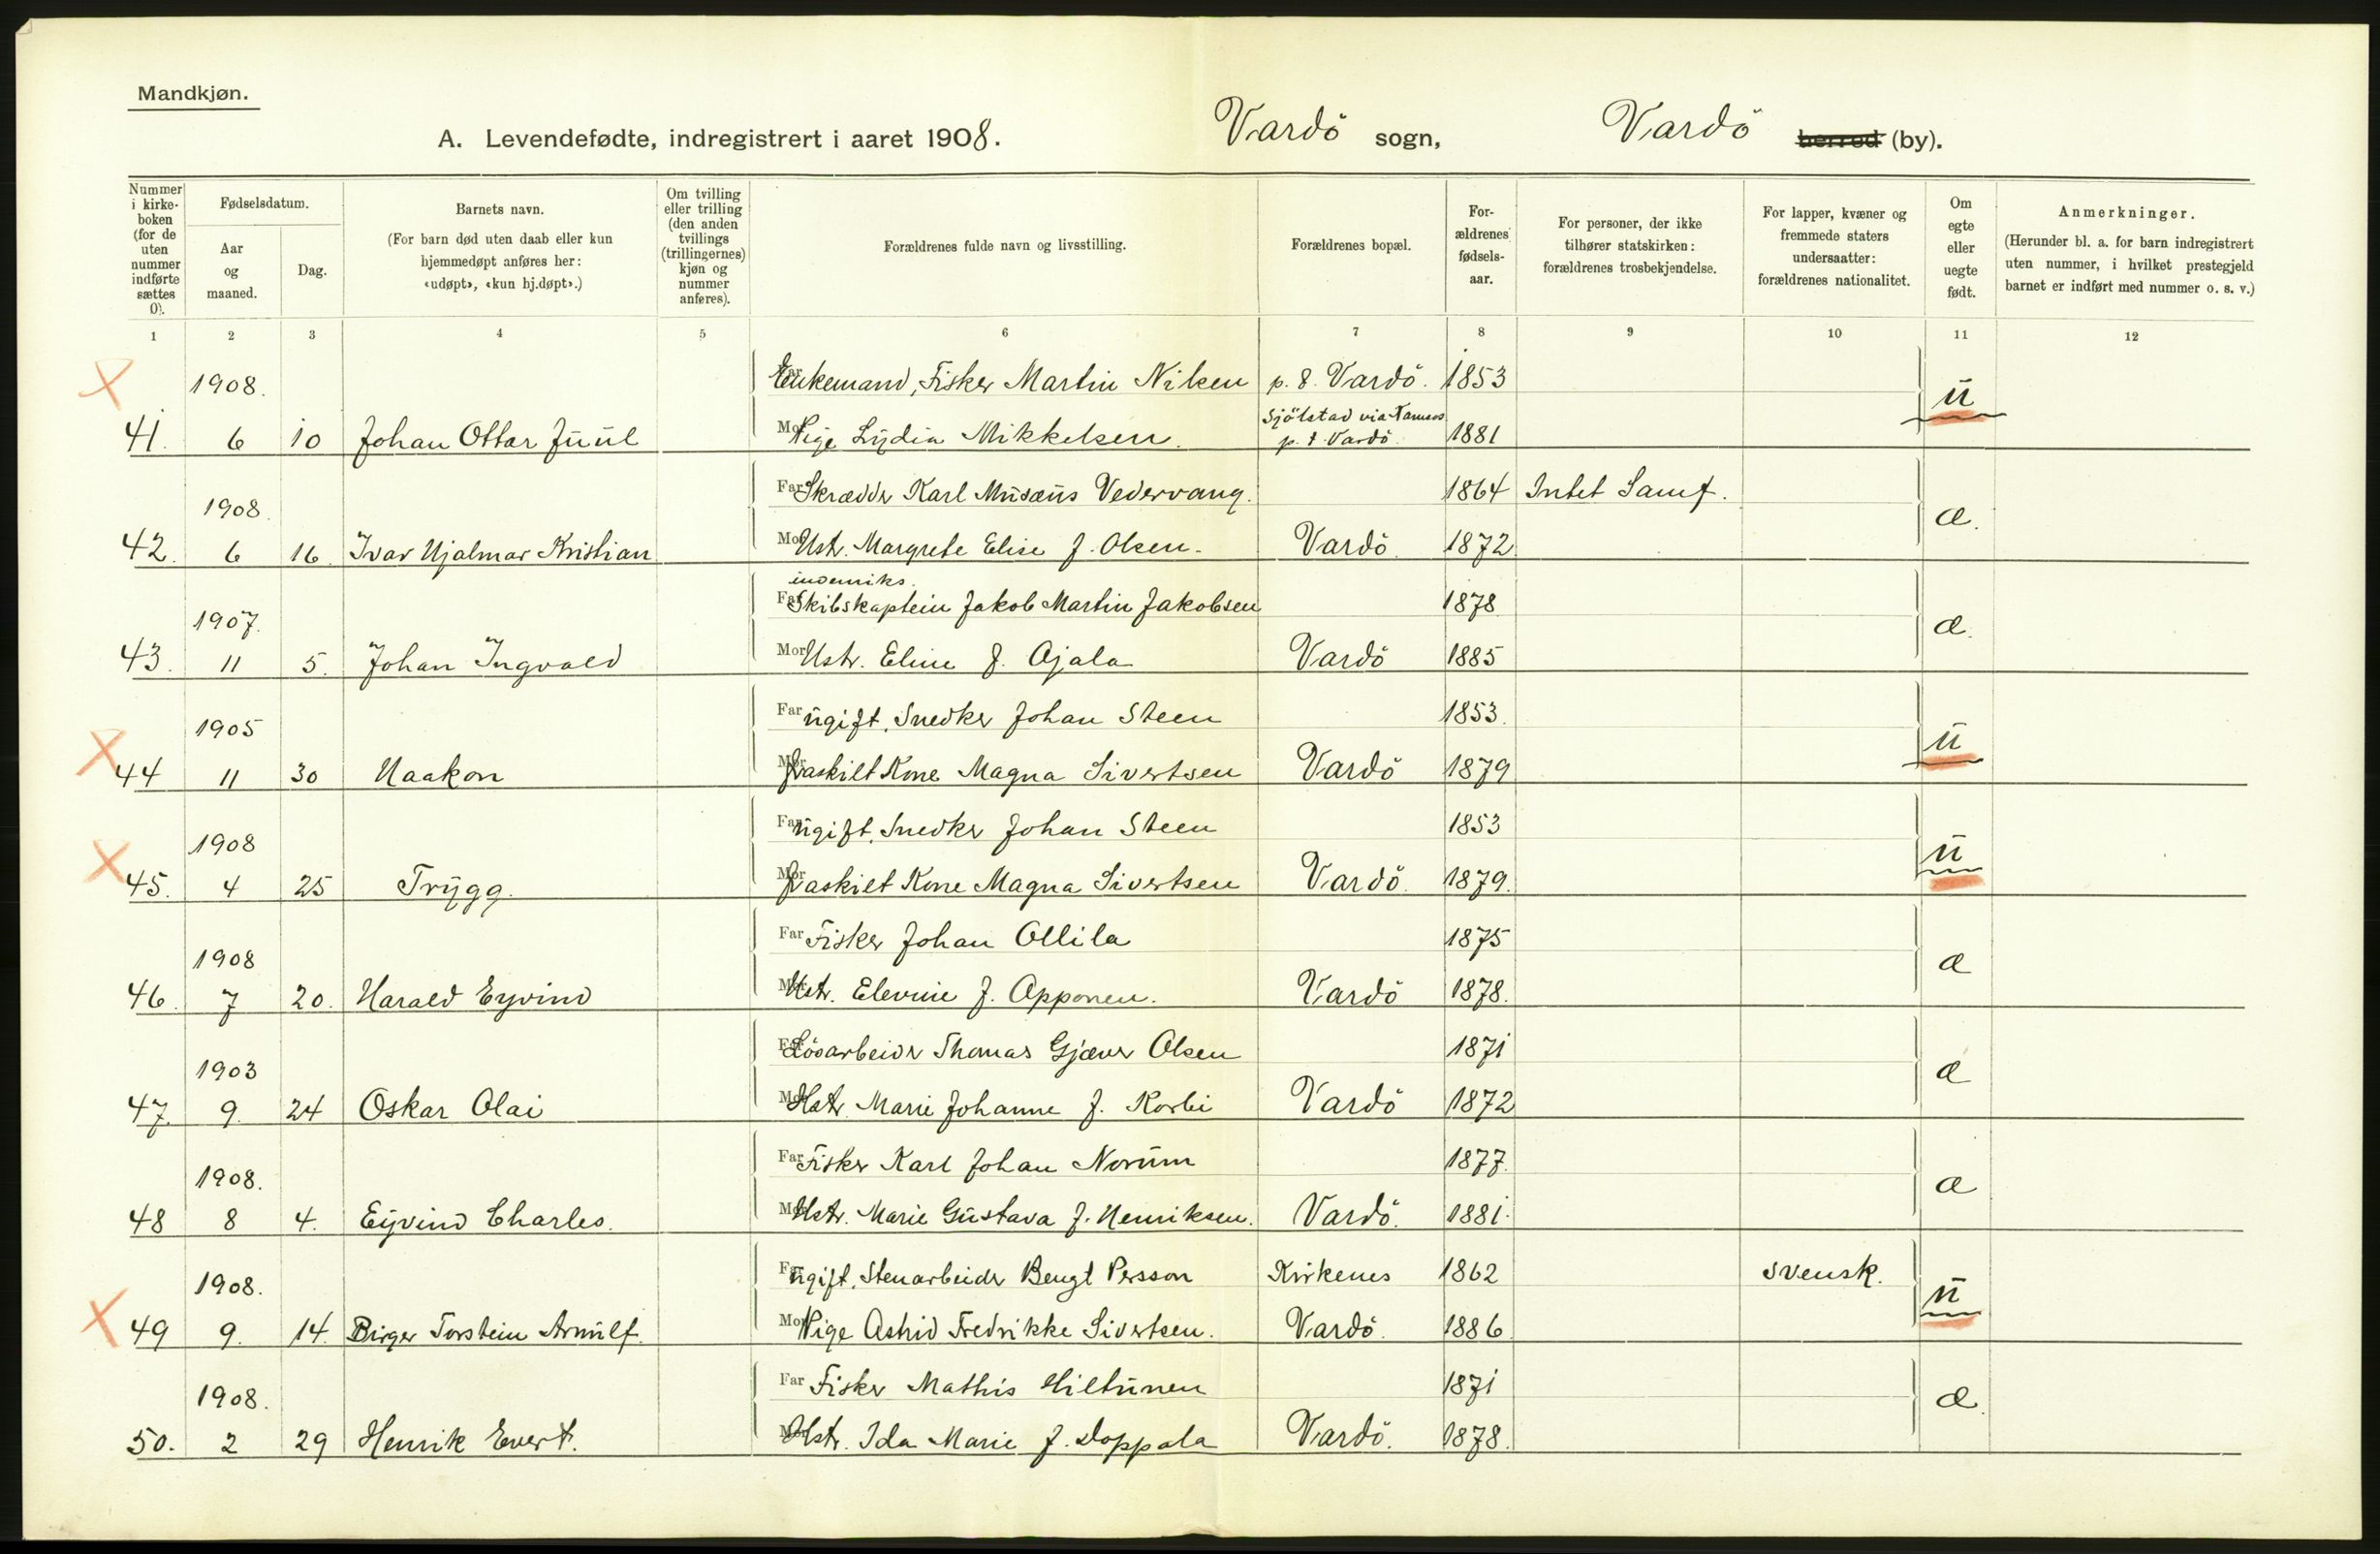 Mandkjøn.
A. Levendefødte, indregistrert i aaret 1908. Vardö sogn, Vardö herred (by).
Nummer i kirke-boken (for de uten nummer indførte sættes 0).
Fødselsdatum.
Aar og maaned.
Dag.
Barnets navn.
(For barn død uten daab eller kun hjemmedøpt anføres her: «udøpt», «kun hj.døpt».)
Om tvilling eller trilling (den anden tvillings (trillingernes) kjøn og nummer anføres).
Forældrenes fulde navn og livsstilling.
Forældrenes bopæl.
For-ældrenes fødsels-aar.
For personer, der ikke tilhører statskirken: forældrenes trosbekjendelse.
For lapper, kvæner og fremmede staters undersaatter: forældrenes nationalitet.
Om egte eller uegte født.
Anmerkninger.
(Herunder bl. a. for barn indregistrert uten nummer, i hvilket prestegjeld barnet er indført med nummer o. s. v.)
1 2 3 4 5 6 7 8 9 10 11 12
1908. Far Enkemand, Fisker Martin Nilsen p. 8. Vardö. 1853 u
41. 6 10 Johan Ottar Juul Mor Pige Lydia Mikkelsen. Sjölstad via p. t. Vardö. 1881
1908. Far Skrædder Karl Musæus Vedervang. 1864 Intet Samf. æ.
42. 6 16. Ivar Hjalmar Kristian Mor Hstr. Margrete Elise f. Olsen. Vardö. 1872
indenriks.
1907. Far Skibskaptein Jakob Martin Jakobsen 1878 æ.
43. 11 5. Johan Ingvald Mor Hstr. Eline f. Ojala Vardö 1885
1905 Far ugift, Snedker Johan Steen 1853. u
44 11 30 Haakon Mor fraskilt Kone Magna Sivertsen Vardö 1879
1908 Far ugift, Snedker Johan Steen 1853 u
45. 4 25 Trygg. Mor fraskilt Kone Magna Sivertsen Vardö. 1879.
1908 Far Fisker Johan Ollila 1875 æ
46. 7 20. Harald Eyvind Mor Hstr. Elevine f. Opponen. Vardö 1878.
1903 Far Lösarbeider Thomas Gjæver Olsen 1871 æ
47. 9. 24 Oskar Olai Mor Hstr. Marie Johanne f. Korbi Vardö 1872
1908. Far Fisker Karl Johan Norum 1877. æ
48 8 4. Eyvind Charles. Mor Hstr. Marie Gustava f. Henriksen. Vardö. 1881.
1908. Far ugift, Stenarbeider Bengt Persson Kirkenes 1862 svensk. u
49 9. 14. Birger Torstein Arnulf. Mor Pige Astrid Fredrikke Sivertsen. Vardö. 1886.
1908. Far Fisker Mathis Hiltunen 1871 æ.
50. 2 29 Henrik Evert. Mor Hstr. Ida Marie f. Doppala Vardö. 1878.